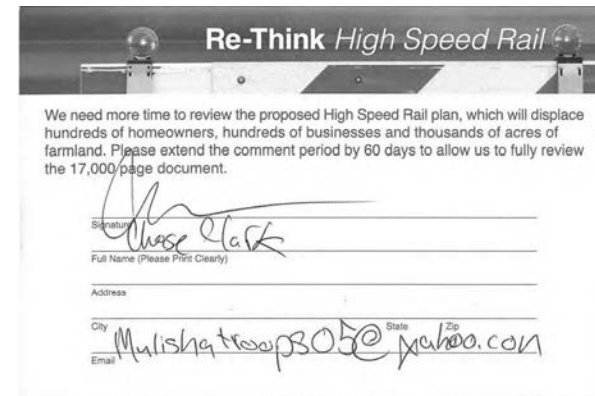 Re-Think High Speed Rail
We need more time to review the proposed High Speed Rail plan, which will displace
hundreds of homeowners, hundreds of businesses and thousands of acres of
farmland. Please extend the comment period by 60 days to allow us to fully review
the 17,000 page document.
Signature
Chase Clark
Full Name (Please Print Clearly)
Address
City State Zip
Mulishatroops05@yahoo.com
Email